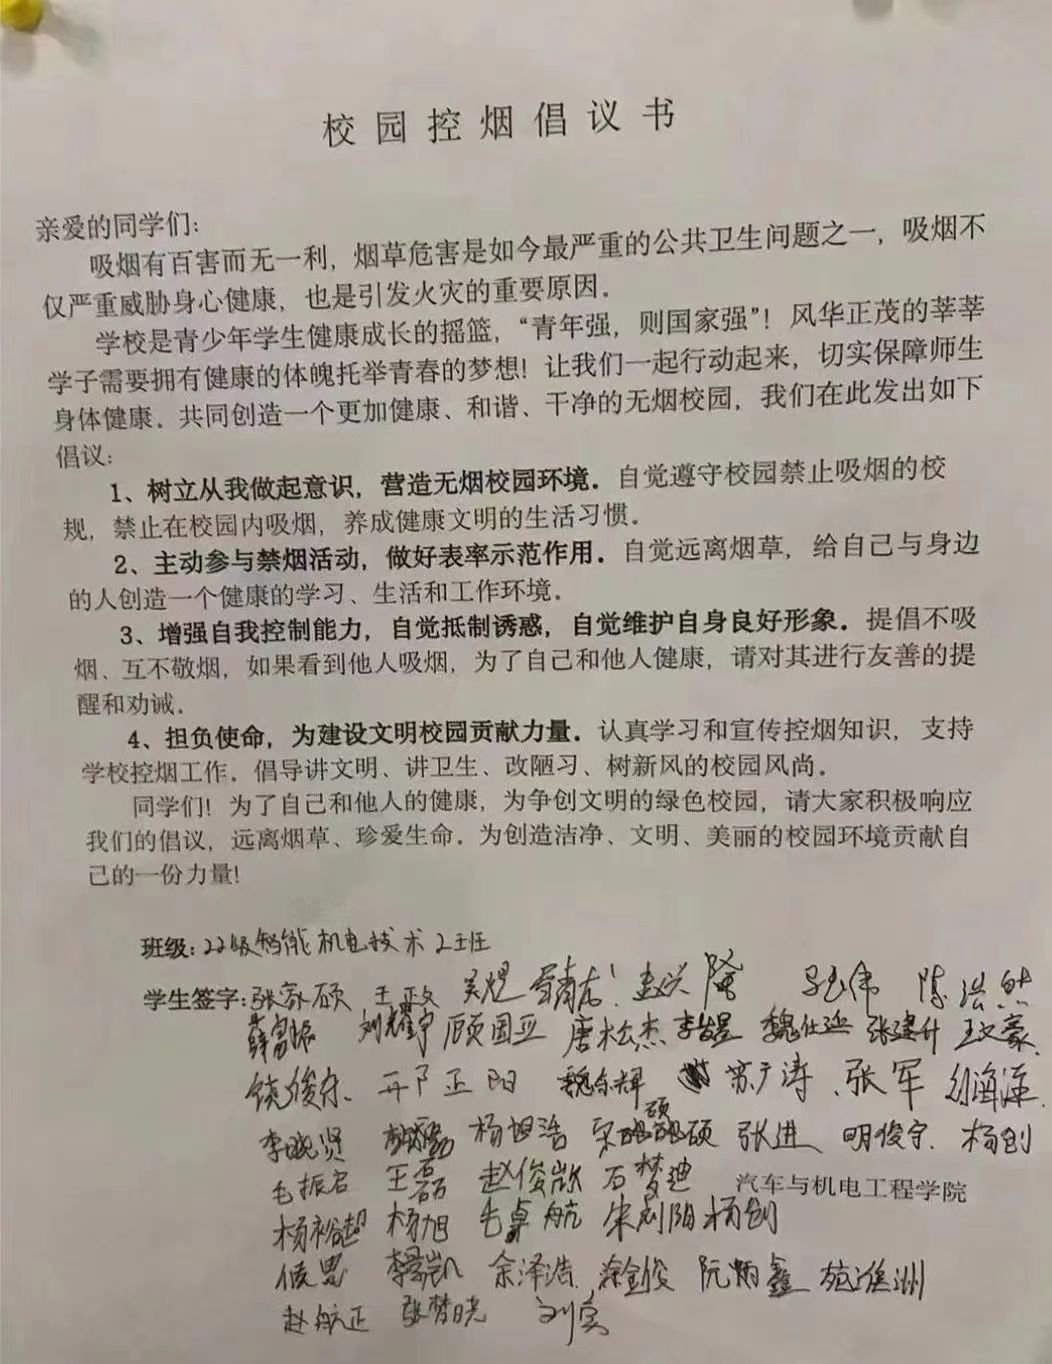 校园控烟倡议书
亲爱的同学们：
吸烟有百害而无一利，烟草危害是如今最严重的公共卫生问题之一，吸烟不
仅严重威胁身心健康，也是引发火灾的重要原因。
学校是青少年学生健康成长的摇篮，“青年强，则国家强”！风华正茂的莘莘
学子需要拥有健康的体魄托举青春的梦想！让我们一起行动起来，切实保障师生
身体健康。共同创造一个更加健康、和谐、干净的无烟校园，我们在此发出如下
倡议：
1、树立从我做起意识，营造无烟校园环境。自觉遵守校园禁止吸烟的校
规，禁止在校园内吸烟，养成健康文明的生活习惯。
2、主动参与禁烟活动，做好表率示范作用。自觉远离烟草，给自己与身边
的人创造一个健康的学习、生活和工作环境。
3、增强自我控制能力，自觉抵制诱惑，自觉维护自身良好形象。提倡不吸
烟、互不敬烟，如果看到他人吸烟，为了自己和他人健康，请对其进行友善的提
醒和劝诫。
4、担负使命，为建设文明校园贡献力量。认真学习和宣传控烟知识，支持
学校控烟工作。倡导讲文明、讲卫生、改陋习、树新风的校园风尚。
同学们！为了自己和他人的健康，为争创文明的绿色校园，请大家积极响应
我们的倡议，远离烟草、珍爱生命。为创造洁净、文明、美丽的校园环境贡献自
己的一份力量！
班级：22级智能机电技术2班
学生签字：张家硕 王政 吴煜 赵兴隆 陈浩然
薛富振 刘耀宇 顾国亚 唐松杰 魏仕延 张建升 王文豪
饶俊宇 正阳 苏广涛 张军
李晓贤 杨坦浩 张进 明俊宇 杨创
毛振名 王磊 赵俊凯 石梦迪 汽车与机电工程学院
杨裕超 杨旭 毛卓航 宋刘阳 杨创
侯恩 余泽浩 涂金俊 阮炳鑫
赵航正 张梦晓 刘宾